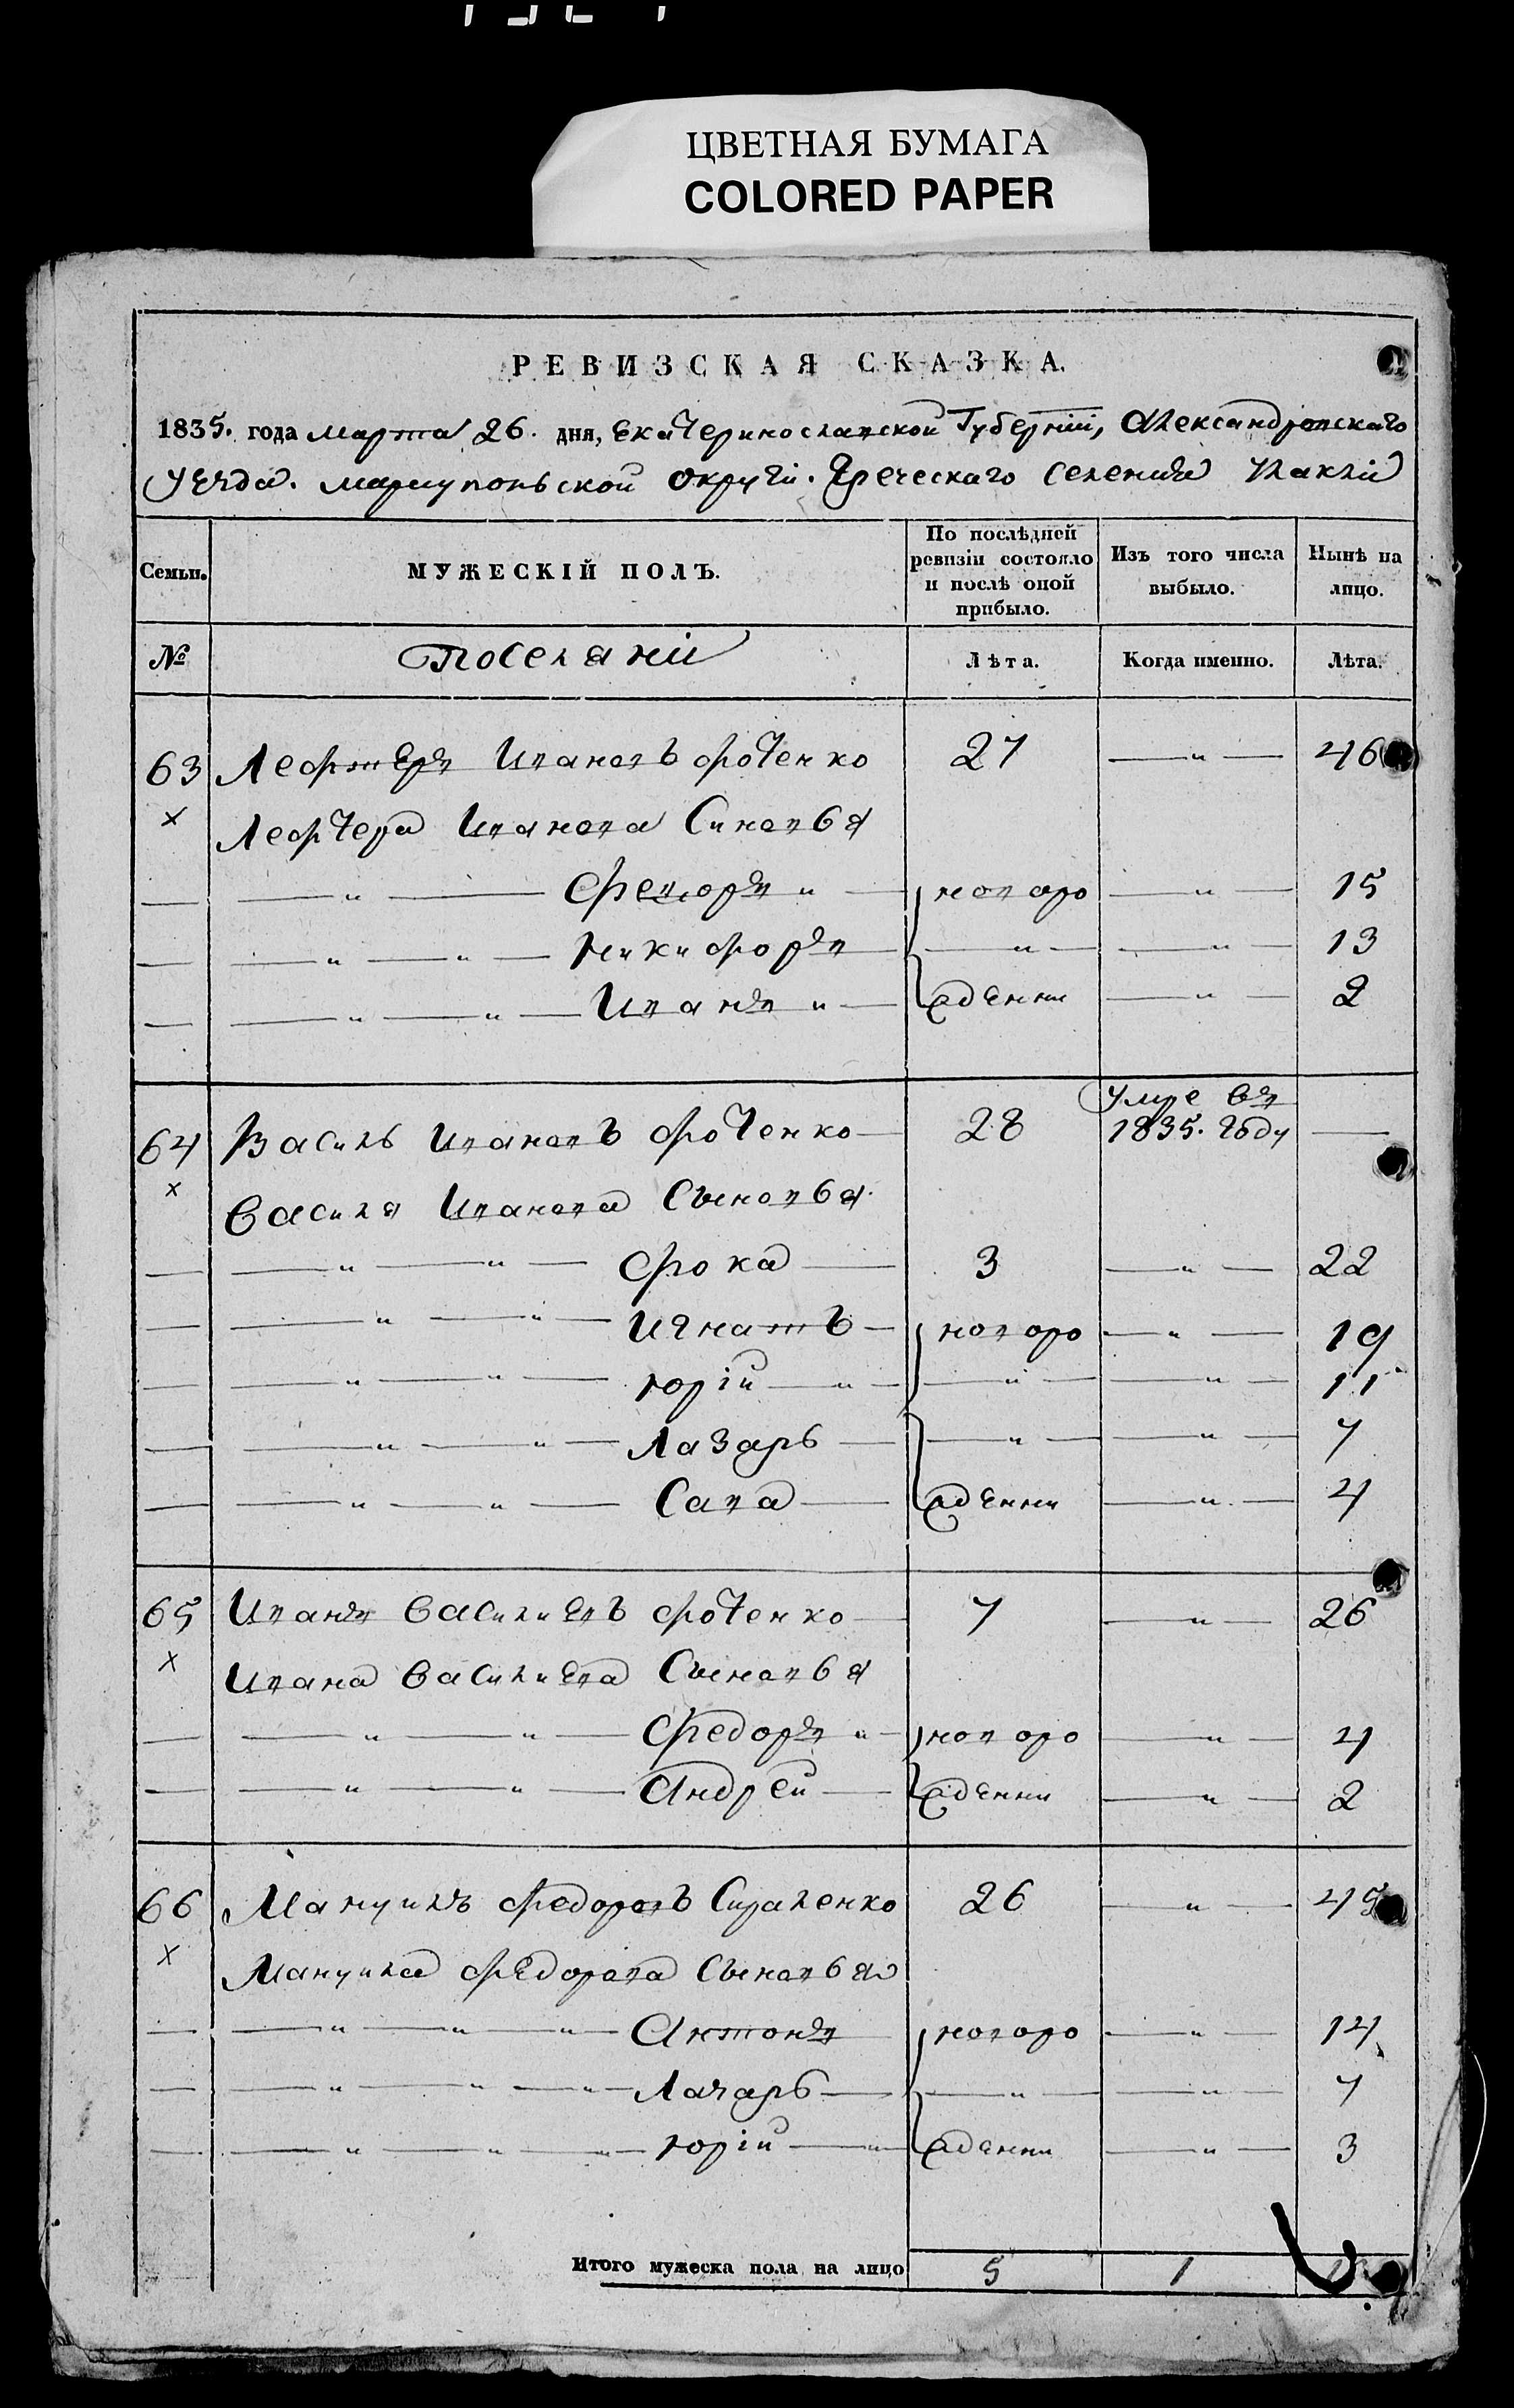 ЦВЕТНАЯ БУМАГА
COLORED PAPER
РЕВИЗСКАЯ СКАЗКА.
1835. года марта 26. дня, Екатеринославской Губернiи, Александровскаго
Уезда. мариупольской округи. Греческаго селения
Семьи. МУЖЕСКІЙ ПОЛЪ. По послѣдней ревизіи состояло и послѣ оной прибыло. Изъ того числа выбыло. Нынѣ на лицо.
№ Поселяни Лѣта. Когда именно. Лѣта.
63 Лефтеръ Ивановъ фотенко 27 — " — 46
x Лефтера Иванова Синовья
— — " — Феодоръ " — новоро — " — 15
— — " — " — Никифоръ — " — — " — 13
— — " — " — Иванъ " — жденни — " — 2
64 Василь Ивановъ фотенко — 28 Умре въ 1835. году —
x Василя Иванова Сыновья.
— — " — " — фока — 3 — " — 22
— — " — " — Игнатъ — новоро — " — 19
— — " — " — юрій — " — — " — — " — 11
— — " — " — Лазарь — — " — — " — 7
— — " — " — Сава — жденни — " — 4
65 Иванъ Василиевъ фотенко — 7 — " — 26
x Ивана Василиева Сыновья
— — " — " — Федоръ " — новоро — " — 4
— — " — " — Андрей — жденни — " — 2
66 Мануилъ федоровъ Сираленко 26 — " — 45
x Мануила федорова Сыновья
— — " — " — " — Антонъ новоро — " — 14
— — " — " — " — Лазарь — — " — — " — 7
— — " — " — " — юрій — " жденни — " — 3
Итого мужеска пола на лицо 5 1